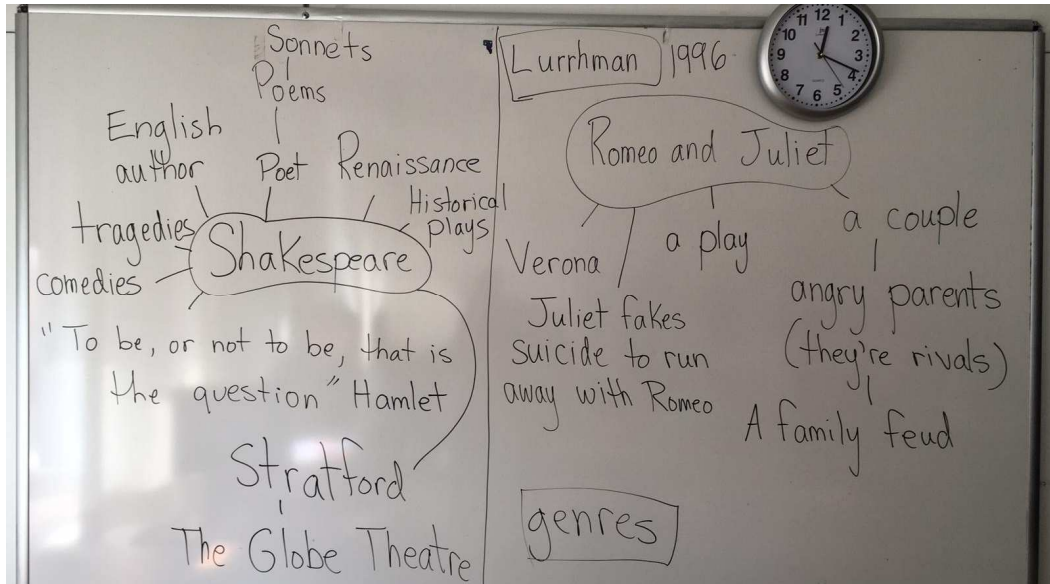 Sonnets
Poems
English
author
Poet
Renaissance
Historical
plays
tragedies
Shakespeare
comedies
"To be, or not to be, that is
the question" Hamlet
Stratford
The Globe Theatre
Lurrhman 1996
Romeo and Juliet
Verona
a play
a couple
Juliet fakes
suicide to run
away with Romeo
angry parents
(they're rivals)
A family feud
genres
12
1
2
3
4
5
6
7
8
9
10
11